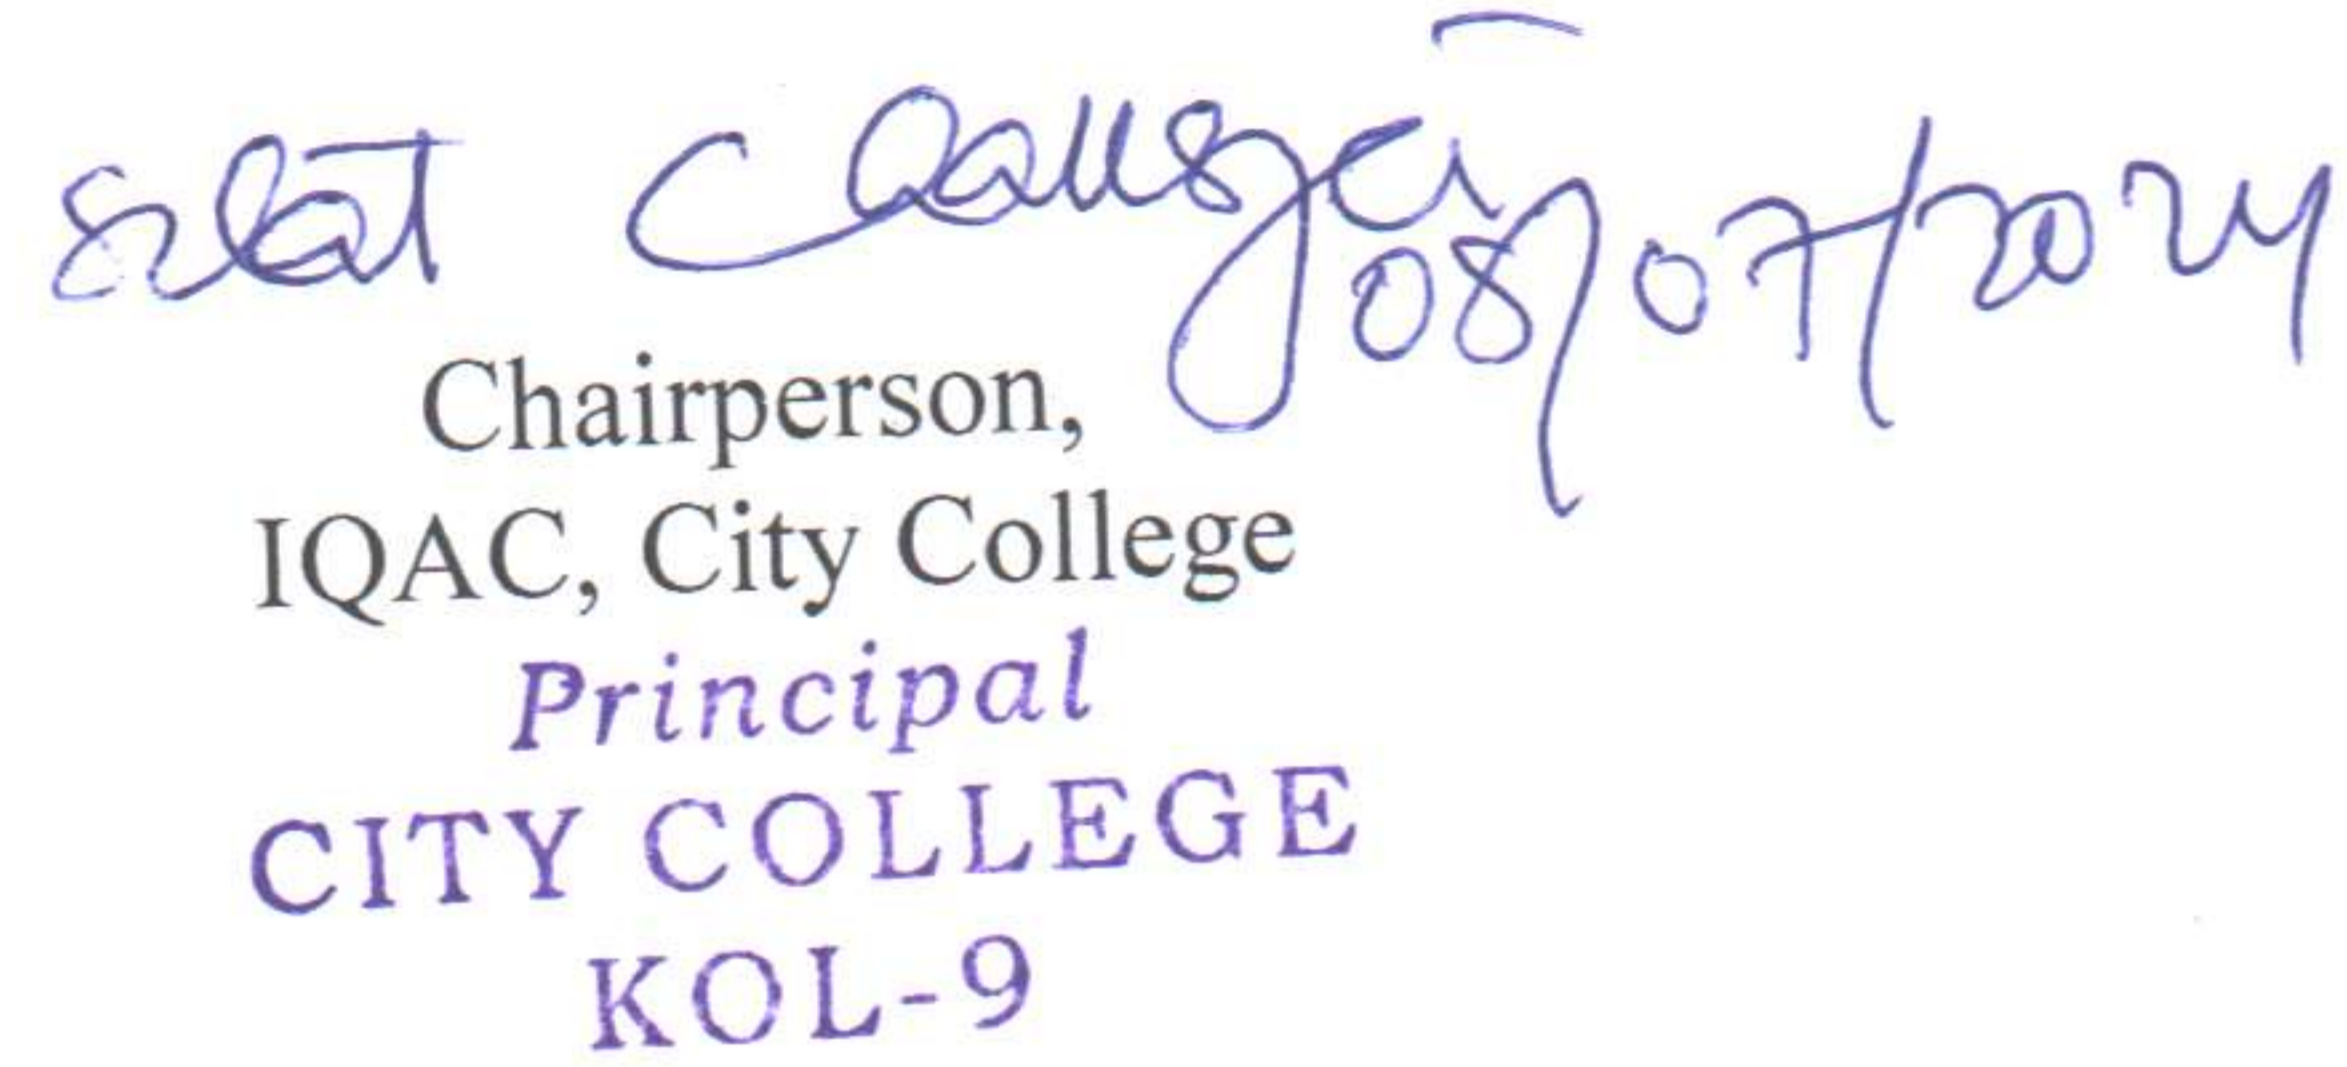 08/07/2024
Chairperson,
IQAC, City College
Principal
CITY COLLEGE
KOL-9